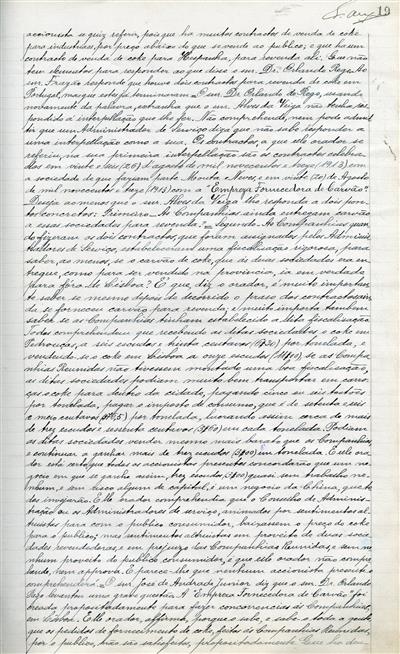 19
accionista se quiz referir, pois que ha muitos contractos de venda de coke
para industriaes, por preço abaixo do que se vende ao publico; e que ha um
contracto de venda de coke para Hespanha, para revenda ali. Que não
tem elementos para responder ao que disse o snr. Dr. Orlando Rego. Ao
snr. Frazão responde que houve dois contractos para revenda de coke em
Portugal, mas que estes já terminaram. O snr. Dr. Orlando do Rego, usando
novamente da palavra, extranha que o snr. Alves da Veiga não tenha res-
pondido á interpellação que lhe fez. Não comprehende, nem pode admit-
tir que um Administrador de Serviço diga que não sabe responder a
uma interpellação como a sua. Os contractos, a que elle orador se
referiu, na sua primeira interpellação são os contractos celebra-
dos em vinte e seis (26) d'agosto de mil novecentos e treze (1913) com
a sociedade de que faz parte Moreta Neves, e em vinte (20) de Agosto
de mil novecentos e treze (1913) com a "Empreza Fornecedora de Carvão".
Deseja ao menos que o snr. Alves da Veiga lhe responda a dois pon-
tos concretos: Primeiro = As Companhias ainda entregam carvão
a essas sociedades para revenda? = Segundo = As Companhias, quan-
do fizeram os dois contractos, que foram assignados pelos Adminis-
tradores de Serviço, estabeleceram uma fiscalização rigorosa, para
saber, ao menos, se o carvão de coke, que ás duas sociedades era en-
tregue, como para ser vendido na provincia, ia em verdade
para fóra de Lisboa? E que, diz o orador, é muito importan-
te saber se mesmo depois de decorrido o prazo dos contractos ain-
da se forneceu carvão para revenda, e muito importa tambem
saber se as Companhias tinham estabelecido a dita fiscalização.
Todos comprehendem que recebendo as ditas sociedades o coke em
Pedrouços, a seis escudos e trinta centavos por tonelada, e
vendendo-se o coke em Lisboa a onze escudos por tonelada, se as Com-
panhias Reunidas não tivessem montado uma boa fiscalização,
as ditas sociedades podiam muito bem transportar em carro-
ças o coke para dentro da cidade, pagando cinco ou seis tostões
por tonelada, pagar o imposto de consumo, que é de setenta e seis
e meio centavos por tonelada, lucrando assim cerca de mais
de trez escudos e sessenta centavos (3$60) em cada tonelada. Podiam
as ditas sociedades vender mesmo mais barato que as Companhias
e continuar a ganhar mais de trez escudos (3$00) em tonelada. E elle ora-
dor está certo que todos os accionistas presentes concordarão que um ne-
gocio em que se ganha assim, trez escudos (3$00) quasi sem trabalho ne-
nhum, e sem risco algum de capital, é um negocio da China, que to-
dos invejarão. E elle orador comprehendia que o Conselho de Adminis-
tração ou os Administradores de serviço, animados por sentimentos al-
truistas para com o publico consumidor, baixassem o preço do coke
para o publico; mas sentimentos altruistas em proveito de duas socie-
dades revendedoras, e em prejuizo das Companhias Reunidas, e sem ne-
nhum proveito do publico consumidor, é que elle orador não compre-
hende, nem approva. E parece-lhe que nenhum accionista presente
comprehenderá. = O snr. José de Andrade Junior diz que o snr. Dr. Orlando
Rego levantou uma grave questão. A "Empreza Fornecedora de Carvão" foi
creada propositadamente para fazer concorrencia ás Companhias,
em Lisboa. Elle orador, affirma, porque o sabe, e sabe-o toda a gente
que os pedidos de fornecimento de coke, feitos ás Companhias Reunidas,
por o publico, não são satisfeitos, propositadamente.